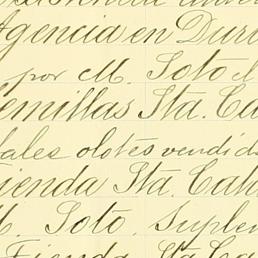 Agencia en Dur
por M. Soto el
emillas Sta. Ca
ales olotes vendid
ienda Sta. Cata
M. Soto. Suplem
Tienda Sta Ca